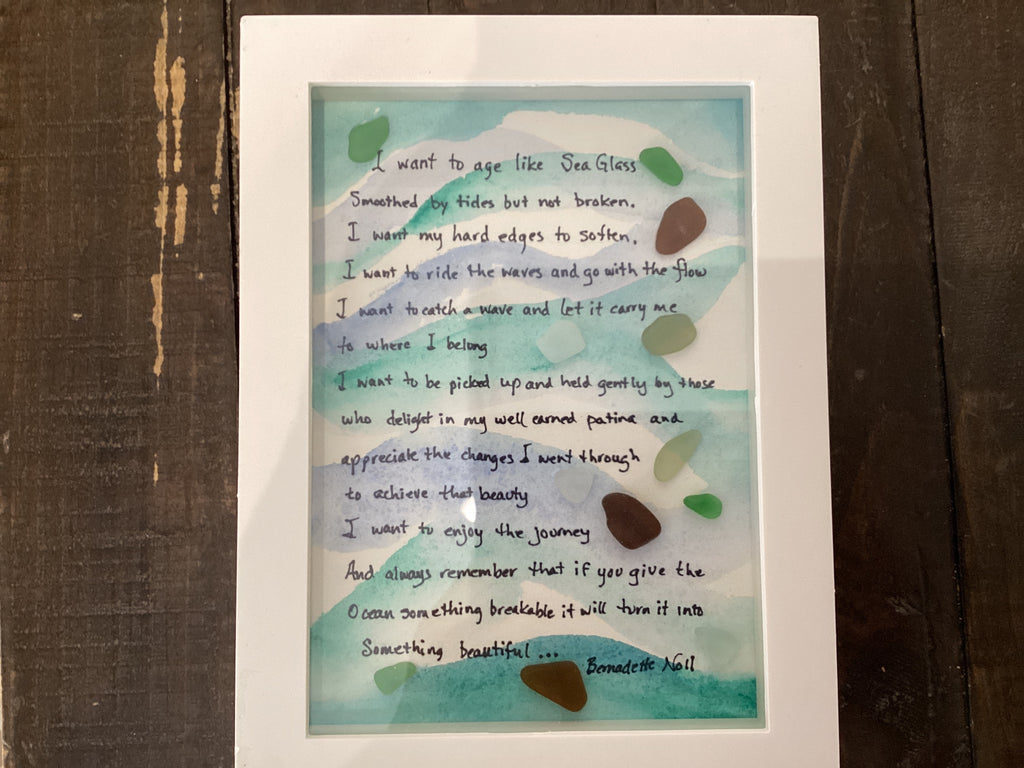 I want to age like Sea Glass
Smoothed by tides but not broken.
I want my hard edges to soften.
I want to ride the waves and go with the flow
I want to catch a wave and let it carry me
to where I belong
I want to be picked up and held gently by those
who delight in my well earned patina and
appreciate the changes I went through
to achieve that beauty
I want to enjoy the journey
And always remember that if you give the
Ocean something breakable it will turn it into
Something beautiful...
Bernadette Noll